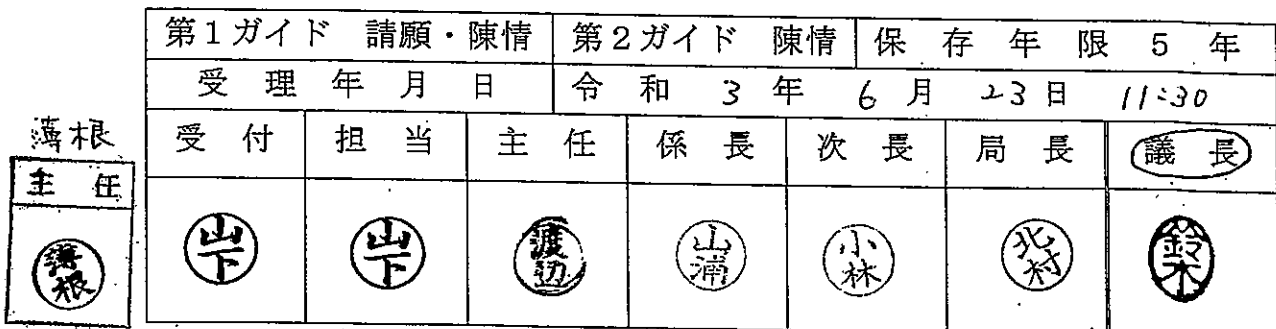 第1ガイド 請願・陳情 第2ガイド 陳情 保存年限5年
受理年月日 令和3年6月23日 11:30
薄根 受付 担当 主任 係長 次長 局長 議長
主任
薄根 山下 山下 渡辺 山浦 小林 北村 鈴木